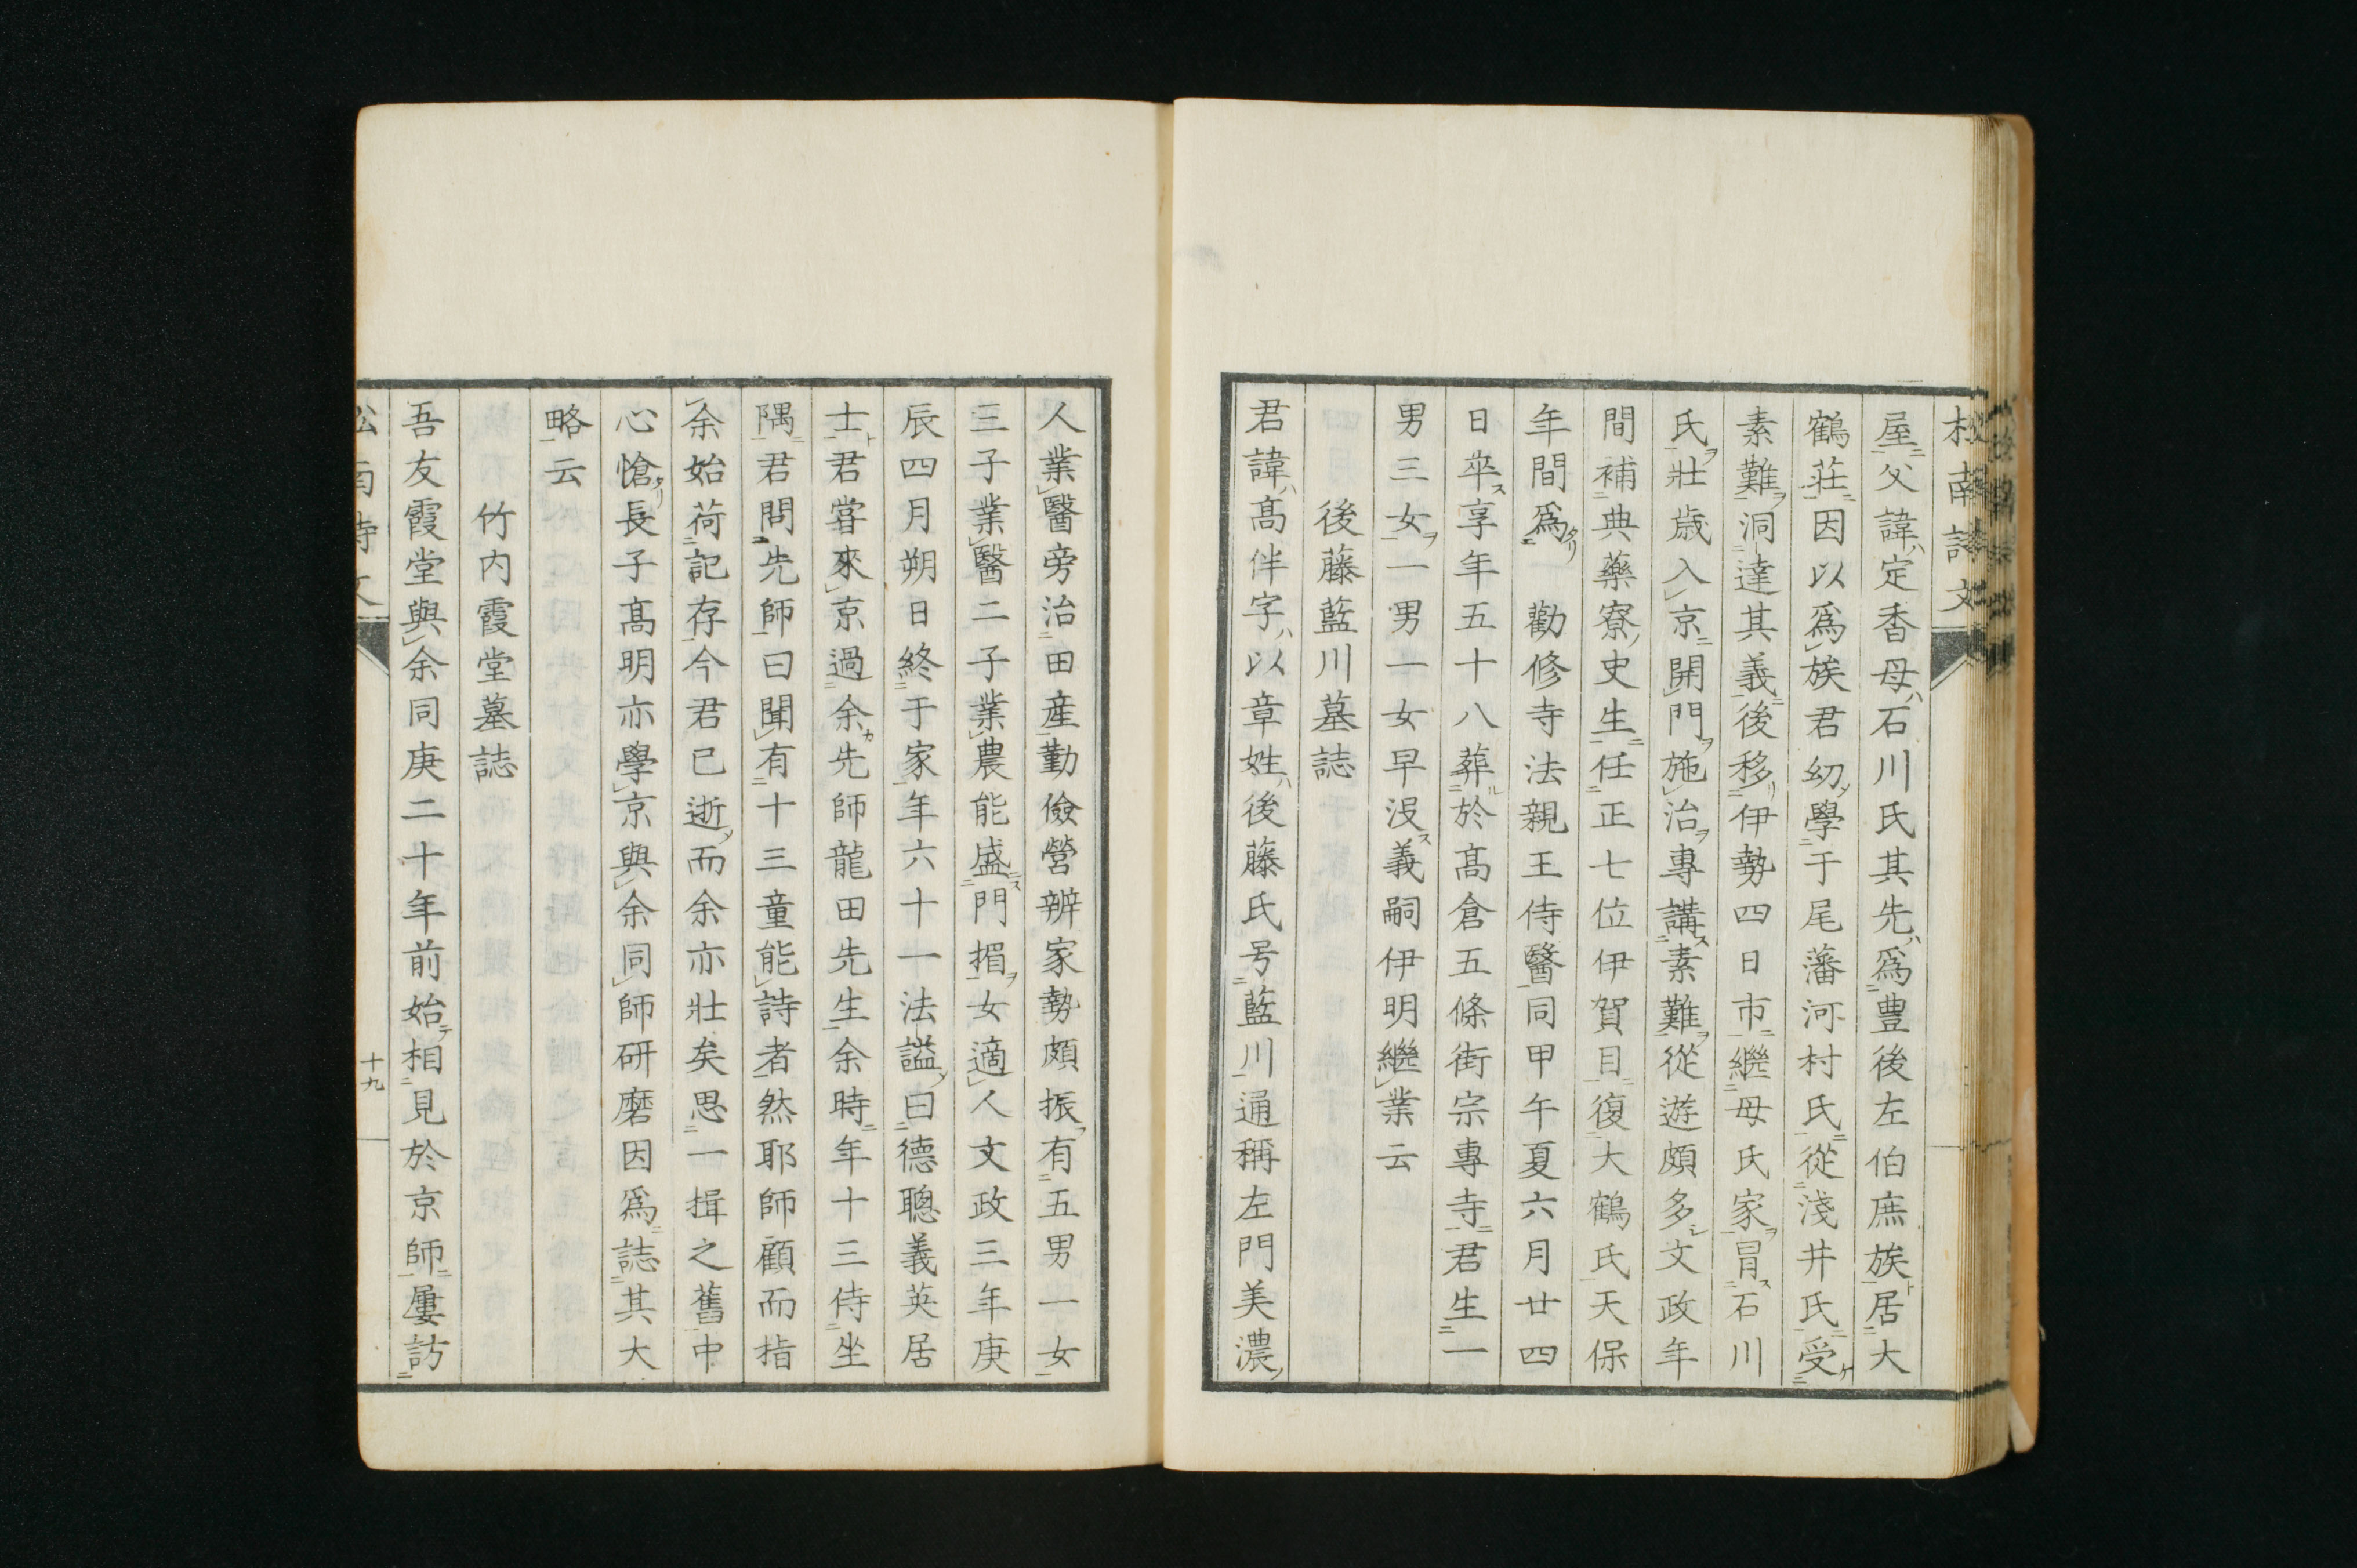 屋父諱定香母石川氏其先爲豊後左伯庶族居大
鶴莊因以爲族君幼學于尾藩河村氏從淺井氏受
素難洞達其義後移伊勢四日市繼母氏家冒石川
氏壯歳入京開門施治專講素難從遊頗多文政年
間補典藥寮史生任正七位伊賀目復大鶴氏天保
年間爲勸修寺法親王侍醫同甲午夏六月廿四
日卒享年五十八葬於髙倉五條街宗專寺君生一
男三女一男一女早没義嗣伊明繼業云
後藤藍川墓誌
君諱髙伴字以章姓後藤氏号藍川通稱左門美濃
人業醫旁治田産勤儉營辨家勢頗振有五男一女
三子業醫二子業農能盛門楣女適人文政三年庚
辰四月朔日終于家年六十一法謚曰德聰義英居
士君嘗來京過余先師龍田先生余時年十三侍坐
隅君問先師曰聞有十三童能詩者然耶師顧而指
余始荷記存今君已逝而余亦壯矣思一揖之舊中
心愴長子髙明亦學京與余同師研磨因爲誌其大
略云
竹内霞堂墓誌
吾友霞堂與余同庚二十年前始相見於京師屢訪
十九